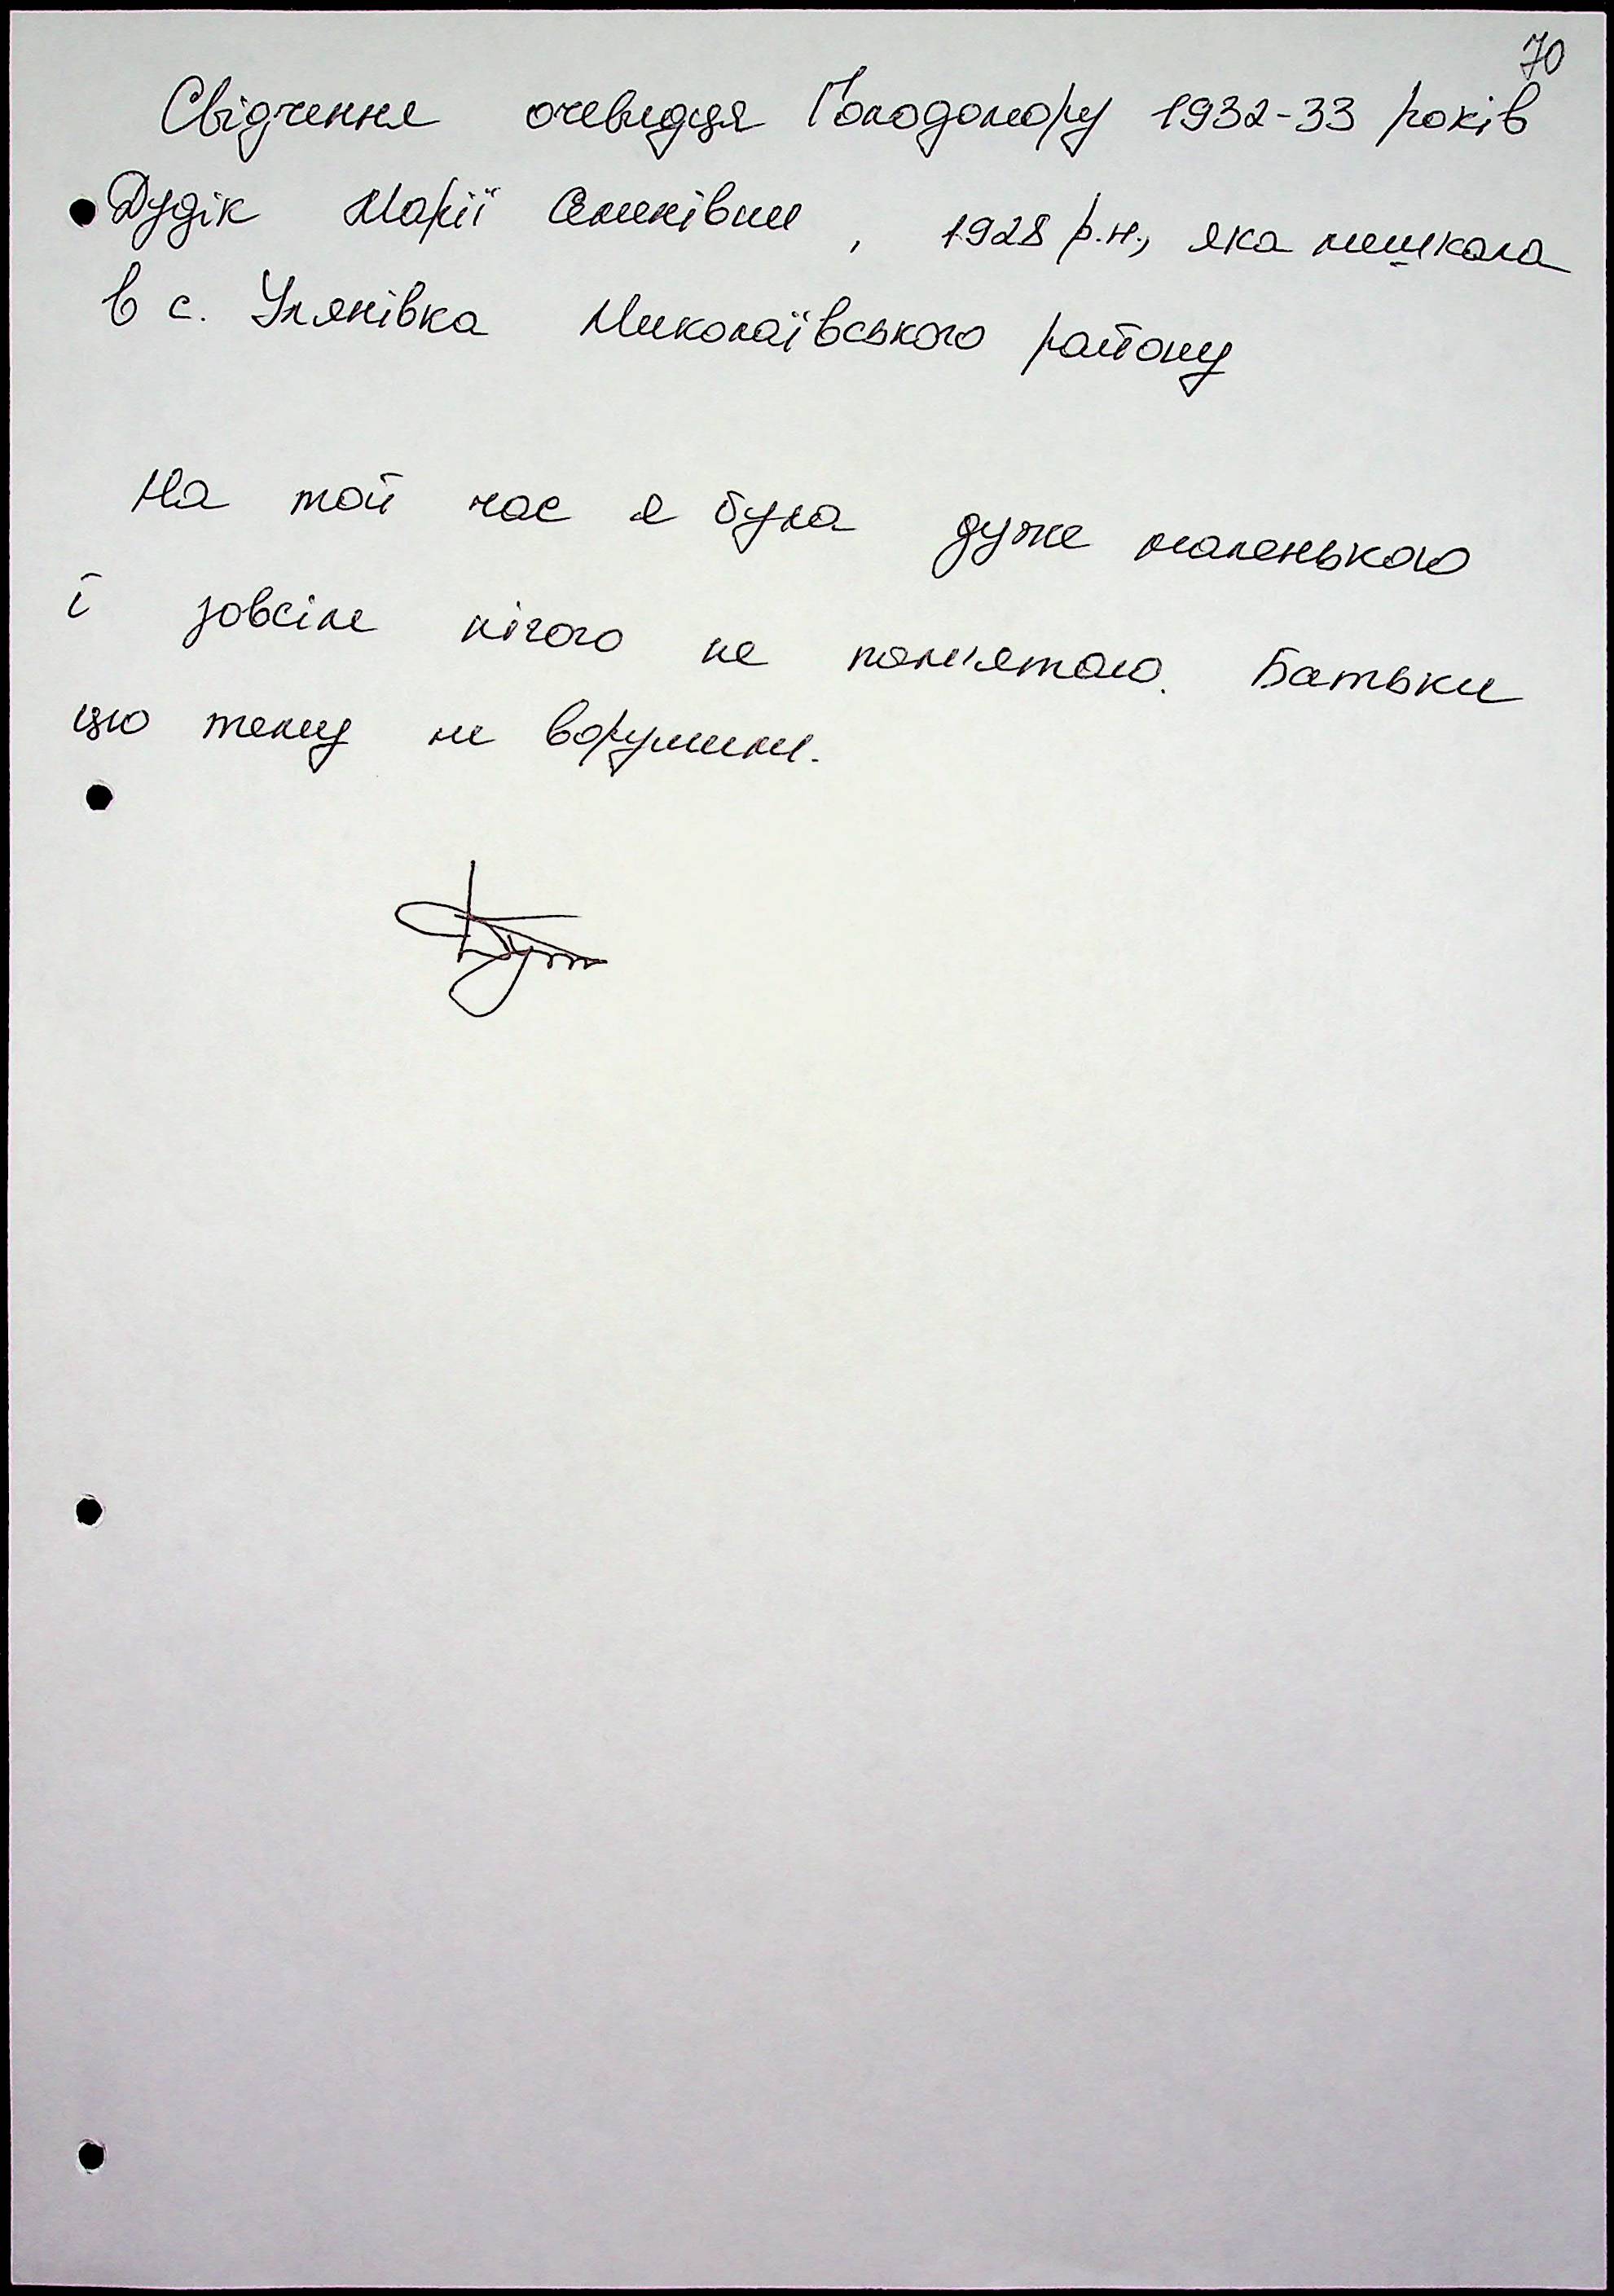 70
Свідчення очевидця Голодомору 1932-33 років
Дудік Марії Семенівни, 1928 р.н., яка мешкала
в с. Улянівка Миколаївського району
На той час я була дуже маленькою
і зовсім нічого не пам'ятаю. Батьки
цю тему не ворушили.